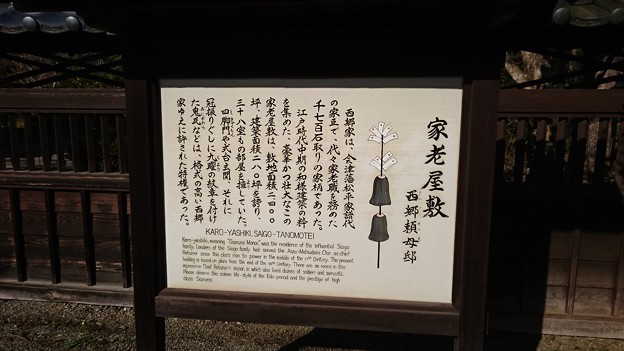 家老屋敷
西郷頼母邸
西郷家は、会津藩松平家譜代
の家臣で、代々家老職を務めた
千七百石取りの家柄であった。
江戸時代中期の和様建築の粋
を集めた、豪華かつ壮大なこの
家老屋敷は、敷地面積二四〇〇
坪、建築面積二八〇坪を誇り、
三十八室もの部屋を擁していた。
四脚門や式台玄関、それに
冠振りぐしに九曜の紋章を付け
た鬼瓦などは、格式の高い西郷
家ゆえに許された特権であった。
KARO-YASHIKI, SAIGO-TANOMOTEI
Karo-yashiki, meaning "Samurai Manor," was the residence of the influential Saigo
family. Leaders of the Saigo family had served the Aizu-Matsudaira Clan as chief
Retainer since this clan's rise to power in the middle of the 17th Century. The present
building is based on plans from the end of the 19th Century. There are no more in this
impressive Chief Retainer's manor, in which also lived dozens of soldiers and servants.
Please observe the solemn life-style of the Edo-period and the prestige of high
class Samurai.